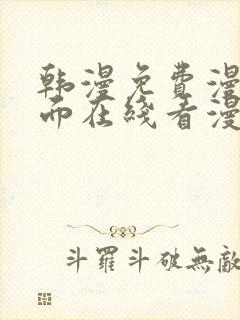 韩漫免費漫
而在綫看漫
斗羅斗破無敵